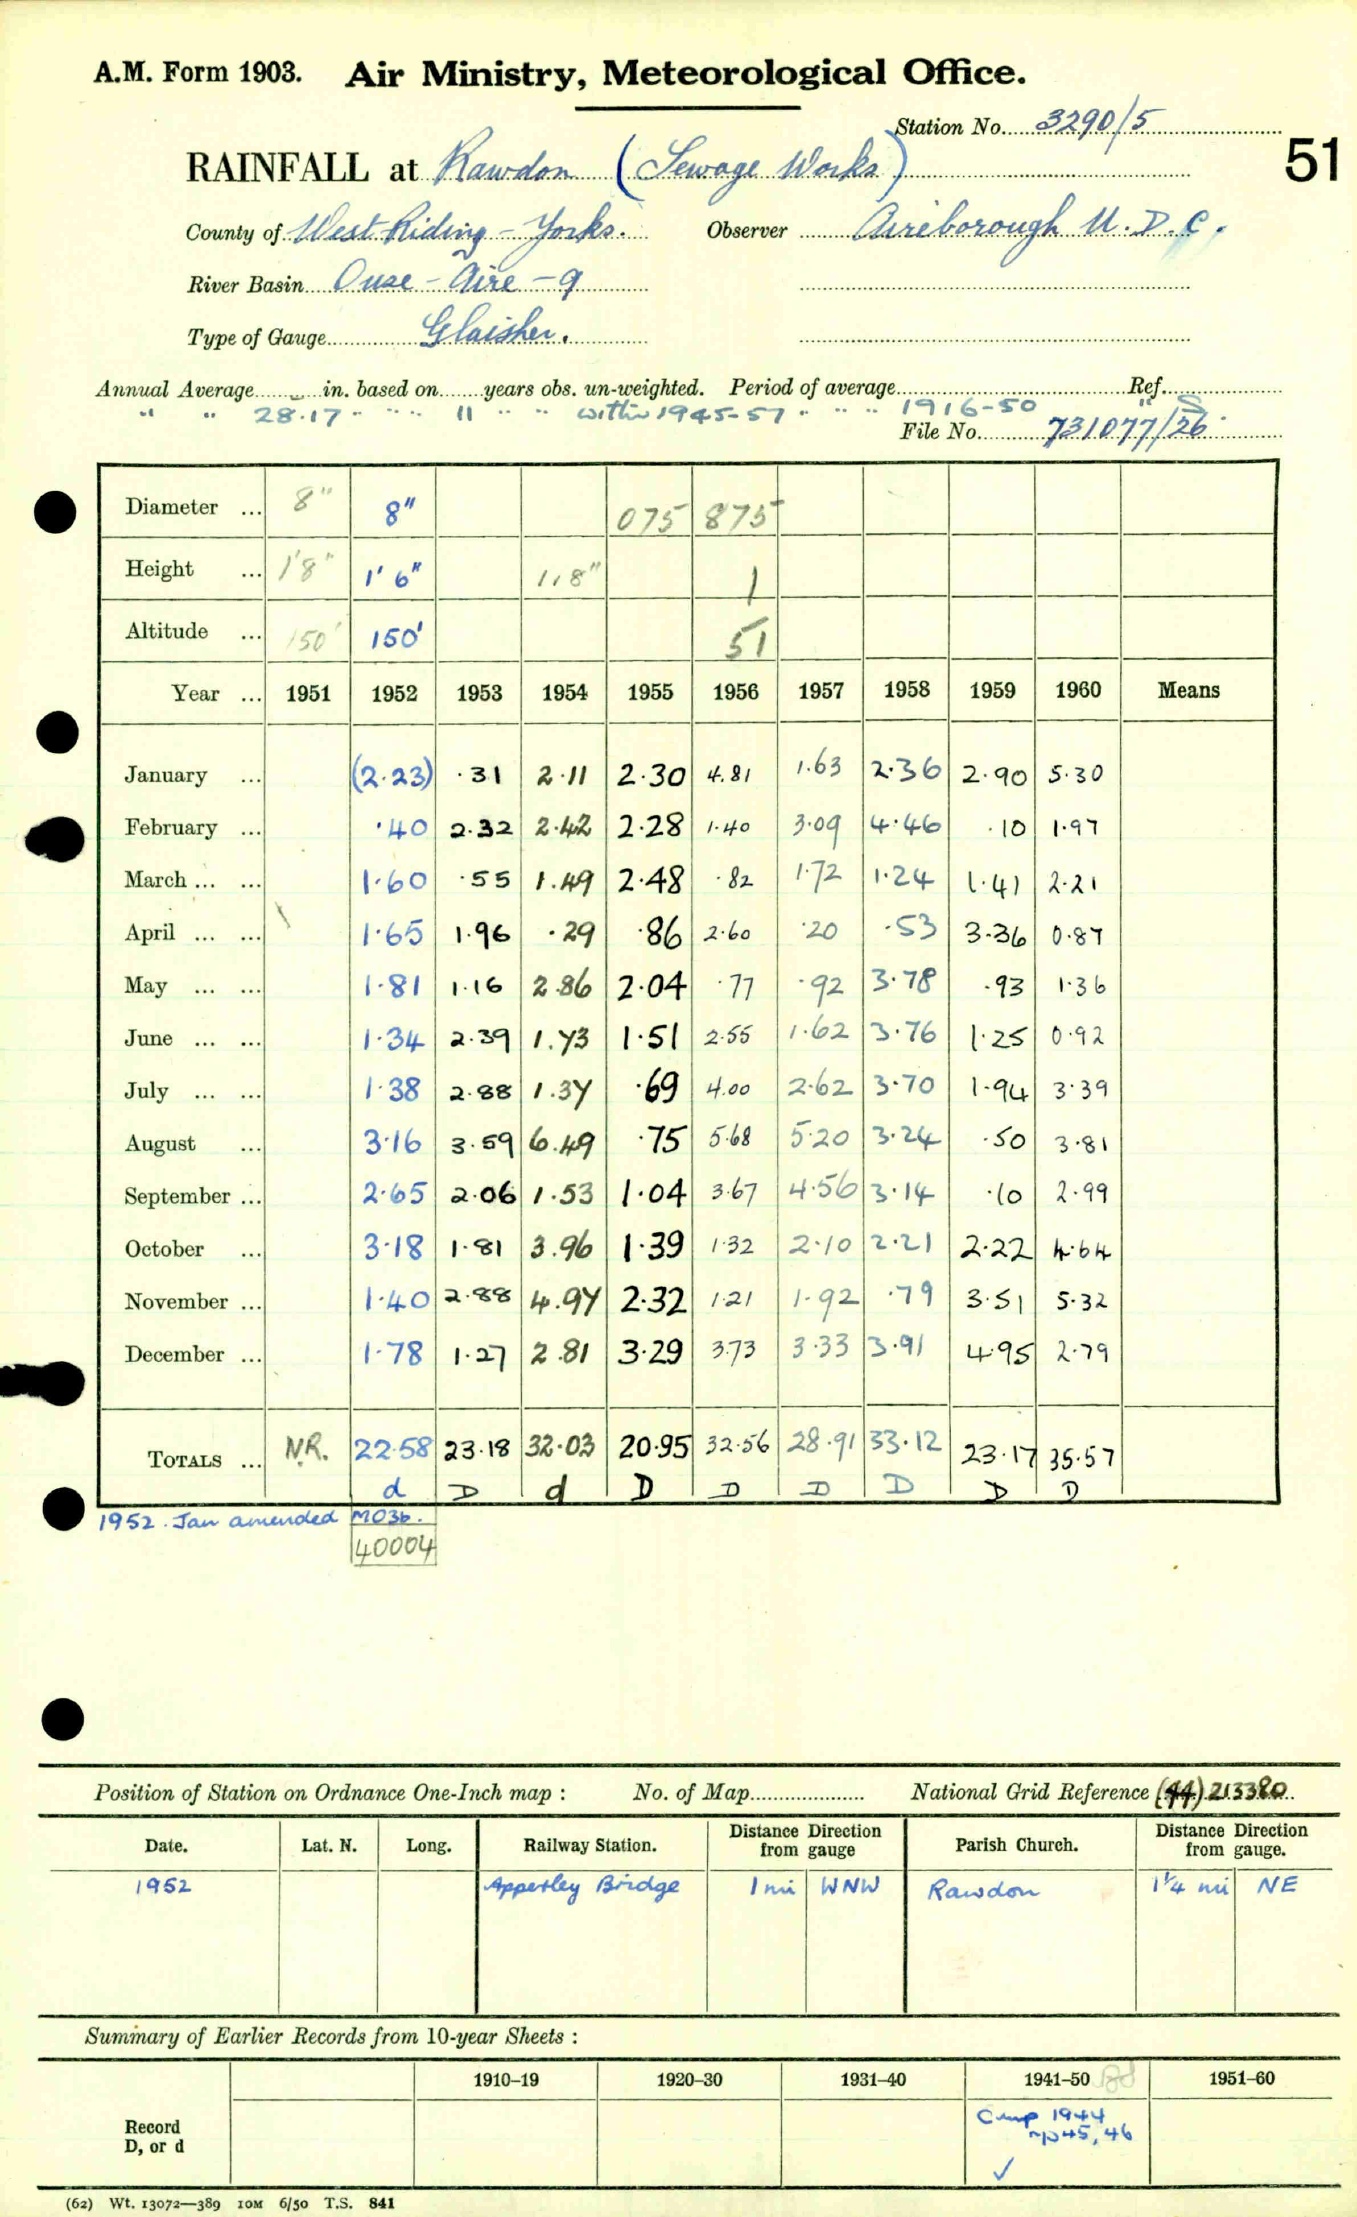 A.M. Form 1903. Air Ministry, Meteorological Office.
Station No. 3290/5
51
RAINFALL at Rawdon (Sewage Works)
County of West Riding - Yorks. Observer Aireborough U.D.C.
River Basin Ouse - Aire - 9
Type of Gauge Glaisher.
Annual Average in. based on years obs. un-weighted. Period of average Ref.
" " 28.17 " " " 11 " " within 1945-57 " " " 1916-50 " S
File No. 731077/26
Diameter ... 8" 8" 075 875
Height ... 1'8" 1'6" 1,8" 1
Altitude ... 150' 150' 51
Year ... 1951 1952 1953 1954 1955 1956 1957 1958 1959 1960 Means
January ... (2.23) .31 2.11 2.30 4.81 1.63 2.36 2.90 5.30
February ... .40 2.32 2.42 2.28 1.40 3.09 4.46 .10 1.97
March ... ... 1.60 .55 1.49 2.48 .82 1.72 1.24 1.41 2.21
April ... ... 1.65 1.96 .29 .86 2.60 .20 .53 3.36 0.87
May ... ... 1.81 1.16 2.86 2.04 .77 .92 3.78 .93 1.36
June ... ... 1.34 2.39 1.73 1.51 2.55 1.62 3.76 1.25 0.92
July ... ... 1.38 2.88 1.37 .69 4.00 2.62 3.70 1.94 3.39
August ... 3.16 3.59 6.49 .75 5.68 5.20 3.24 .50 3.81
September ... 2.65 2.06 1.53 1.04 3.67 4.56 3.14 .10 2.99
October ... 3.18 1.81 3.96 1.39 1.32 2.10 2.21 2.22 4.64
November ... 1.40 2.88 4.97 2.32 1.21 1.92 .79 3.51 5.32
December ... 1.78 1.27 2.81 3.29 3.73 3.33 3.91 4.95 2.79
TOTALS ... N.R. 22.58 23.18 32.03 20.95 32.56 28.91 33.12 23.17 35.57
d D d D D D D D D
1952. Jan amended MO3b.
40004
Position of Station on Ordnance One-Inch map : No. of Map National Grid Reference (44) 213380
Date. Lat. N. Long. Railway Station. Distance Direction from gauge Parish Church. Distance Direction from gauge.
1952 Apperley Bridge 1 mi WNW Rawdon 1¼ mi NE
Summary of Earlier Records from 10-year Sheets :
1910–19 1920–30 1931–40 1941–50 1951–60
Record
D, or d
Comp 1944
45, 46
✓
(62) Wt. 13072—389 10M 6/50 T.S. 841